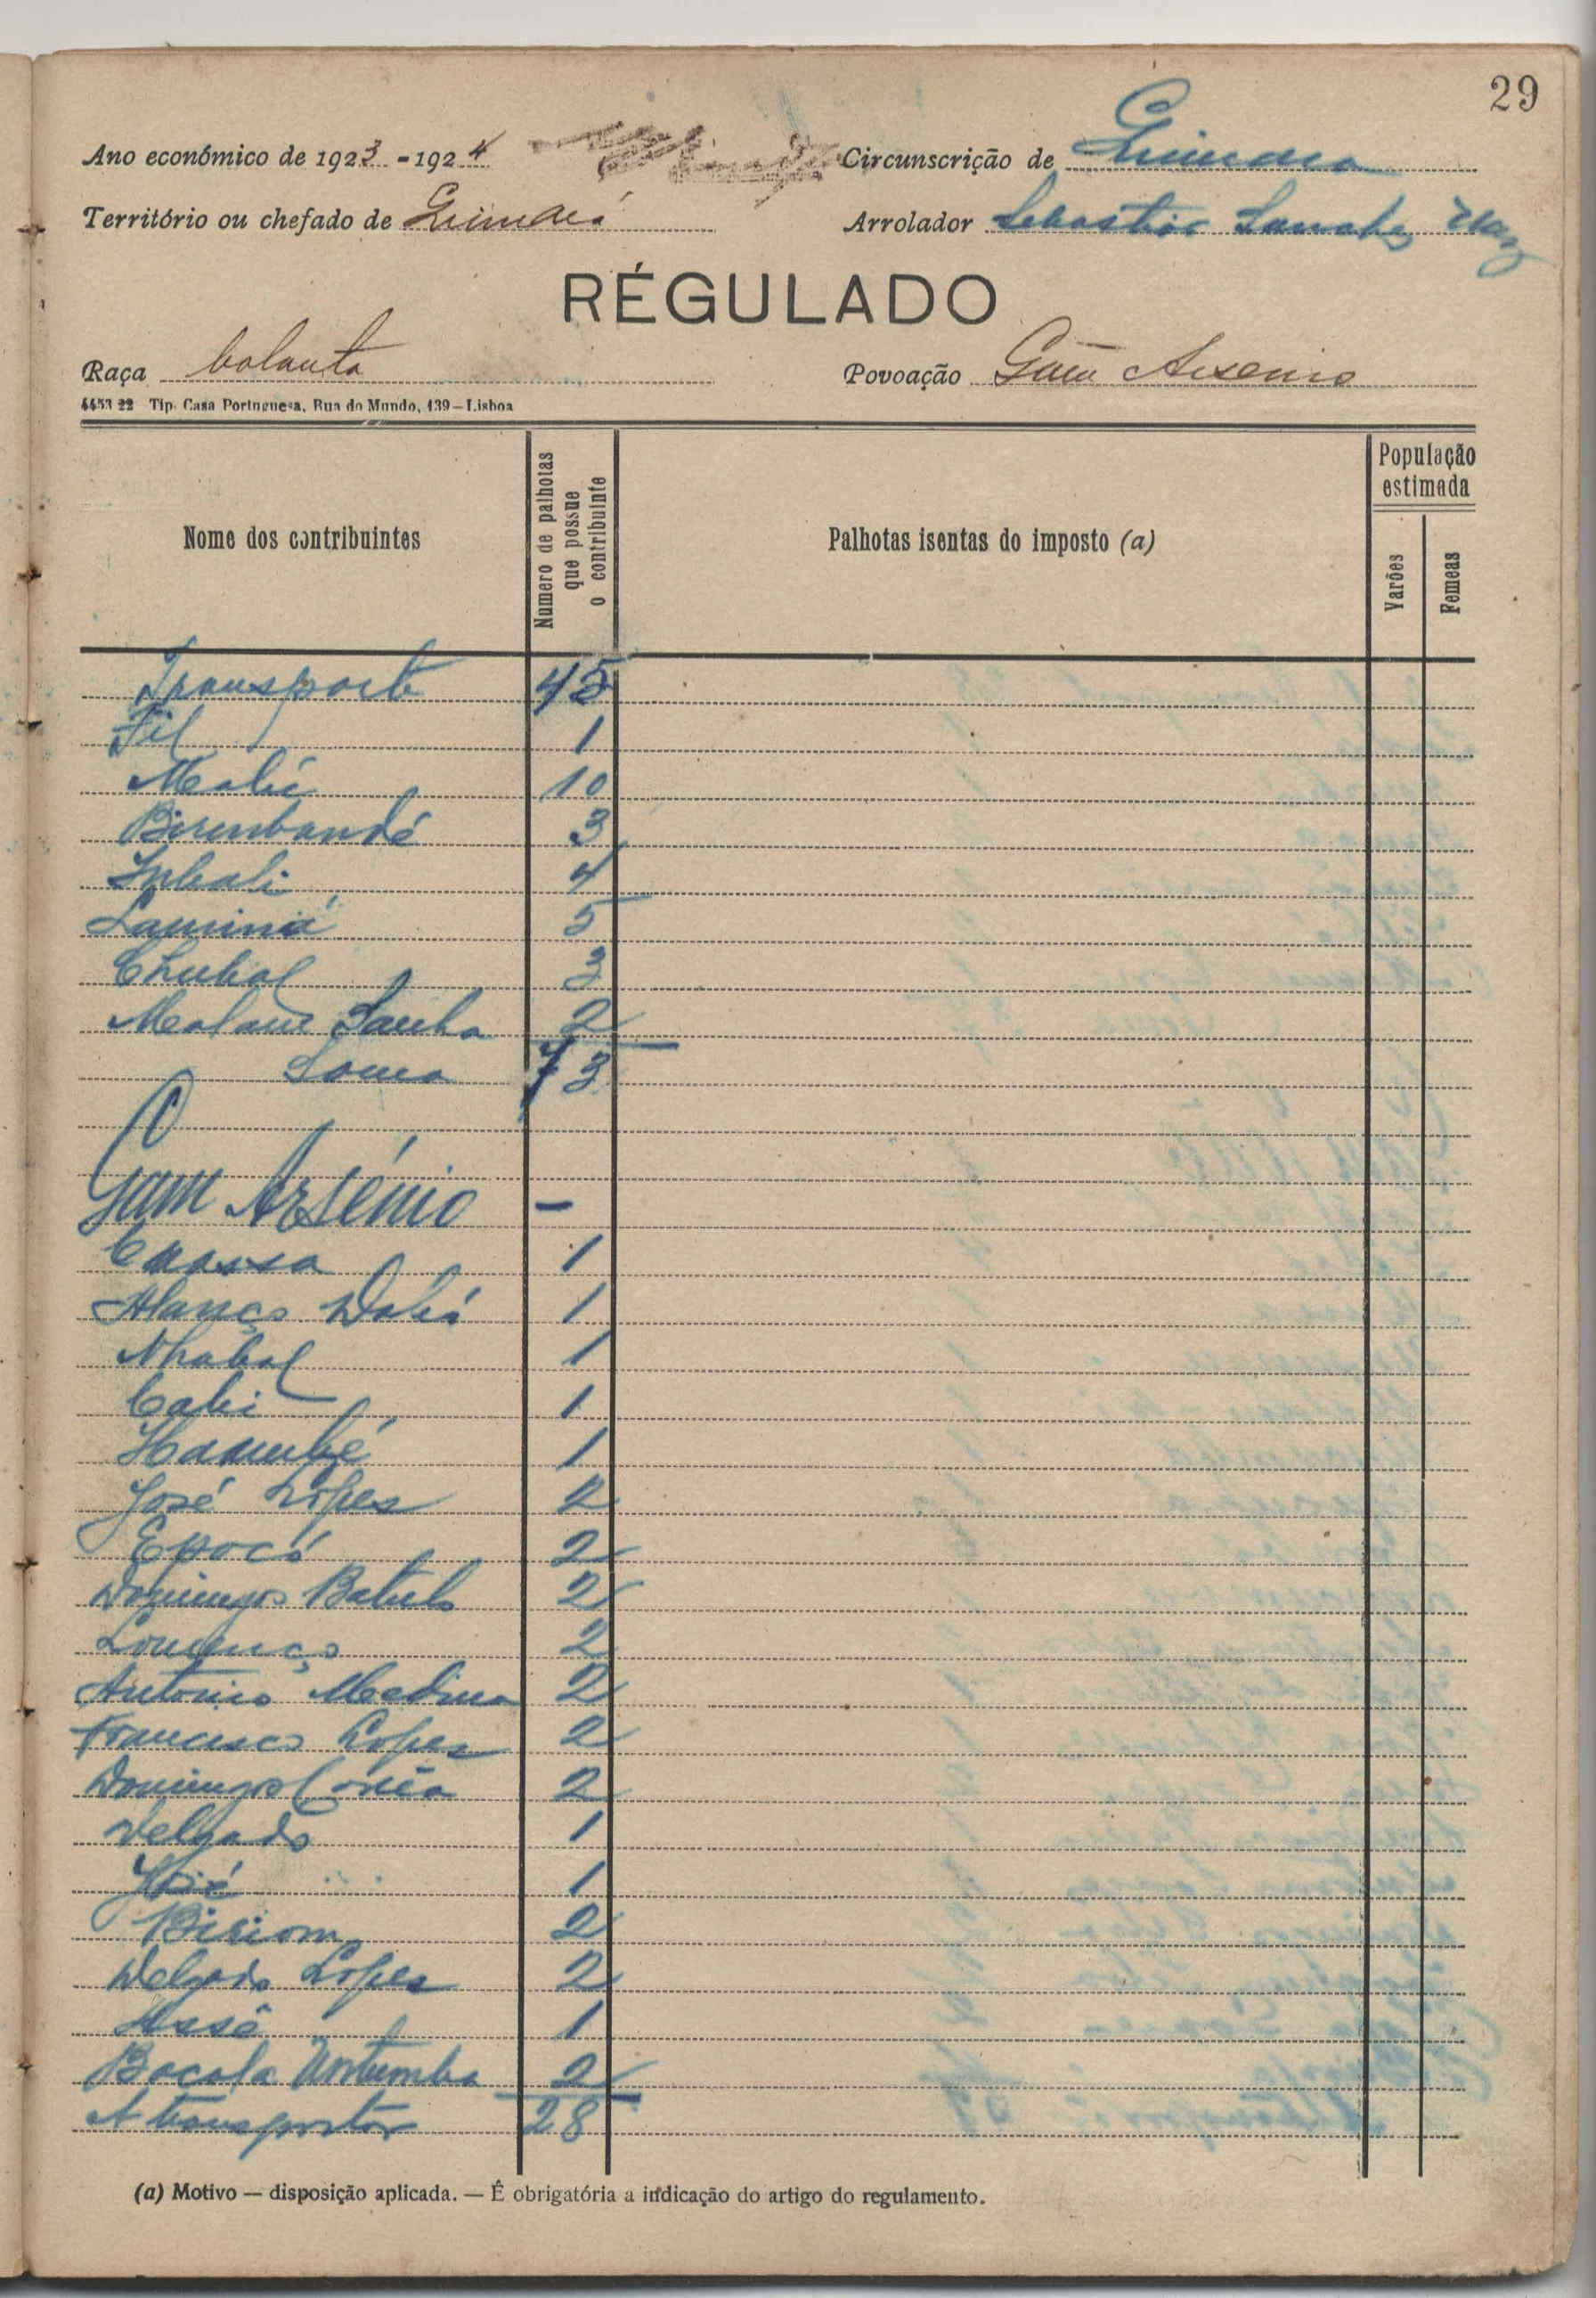 29
Ano económico de 1923 - 1924 Circunscrição de
Território ou chefado de Arrolador Sebastião Sanches
RÉGULADO
Raça balanta Povoação Gam Arsenio
4453 22 Tip. Casa Portuguesa, Rua do Mundo, 139 – Lisboa
Nome dos contribuintes Numero de palhotas que possue o contribuinte Palhotas isentas do imposto (a) População estimada Varões Femeas
Transporte 45
Fil 1
Malé 10
3
Inbali 4
5
3
Malam Sanha 2
Soma 73
Gam Arsénio -
1
1
Nhabal 1
Cabi 1
1
José Lopes 2
2
Domingos 2
Lourenço 2
Antonio Medina 2
Francisco Lopes 2
Domingos Corrêa 2
Delgado 1
José 1
2
Delgado Lopes 2
Assô 1
Bacala 2
A transportar 28
(a) Motivo — disposição aplicada. — É obrigatória a indicação do artigo do regulamento.